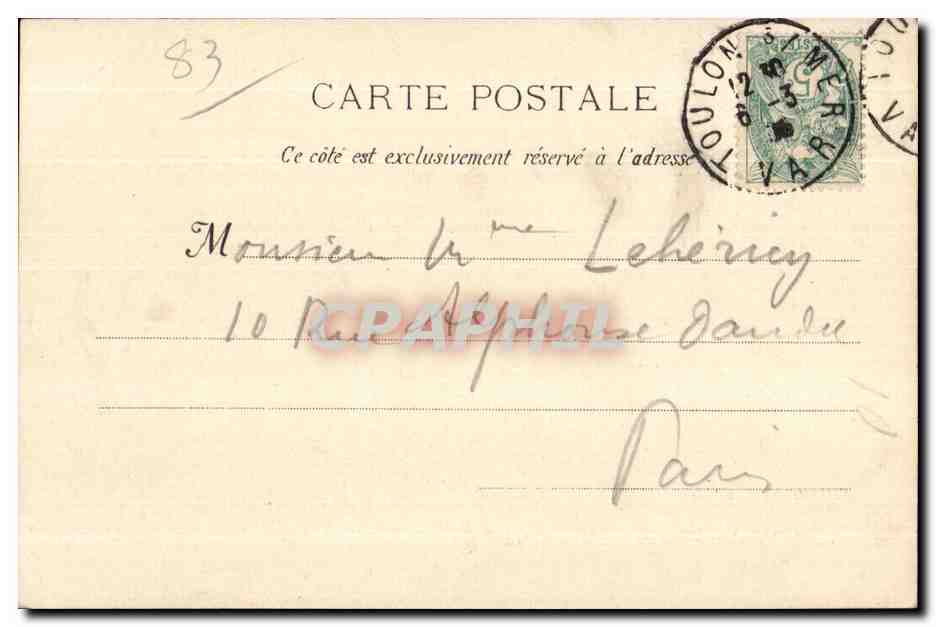 83
CARTE POSTALE
Ce côté est exclusivement réservé à l'adresse
TOULON S/MER
VAR
Monsieur Mme Lehéricy
10 Rue Alphonse Daudet
Paris
CPAPHIL